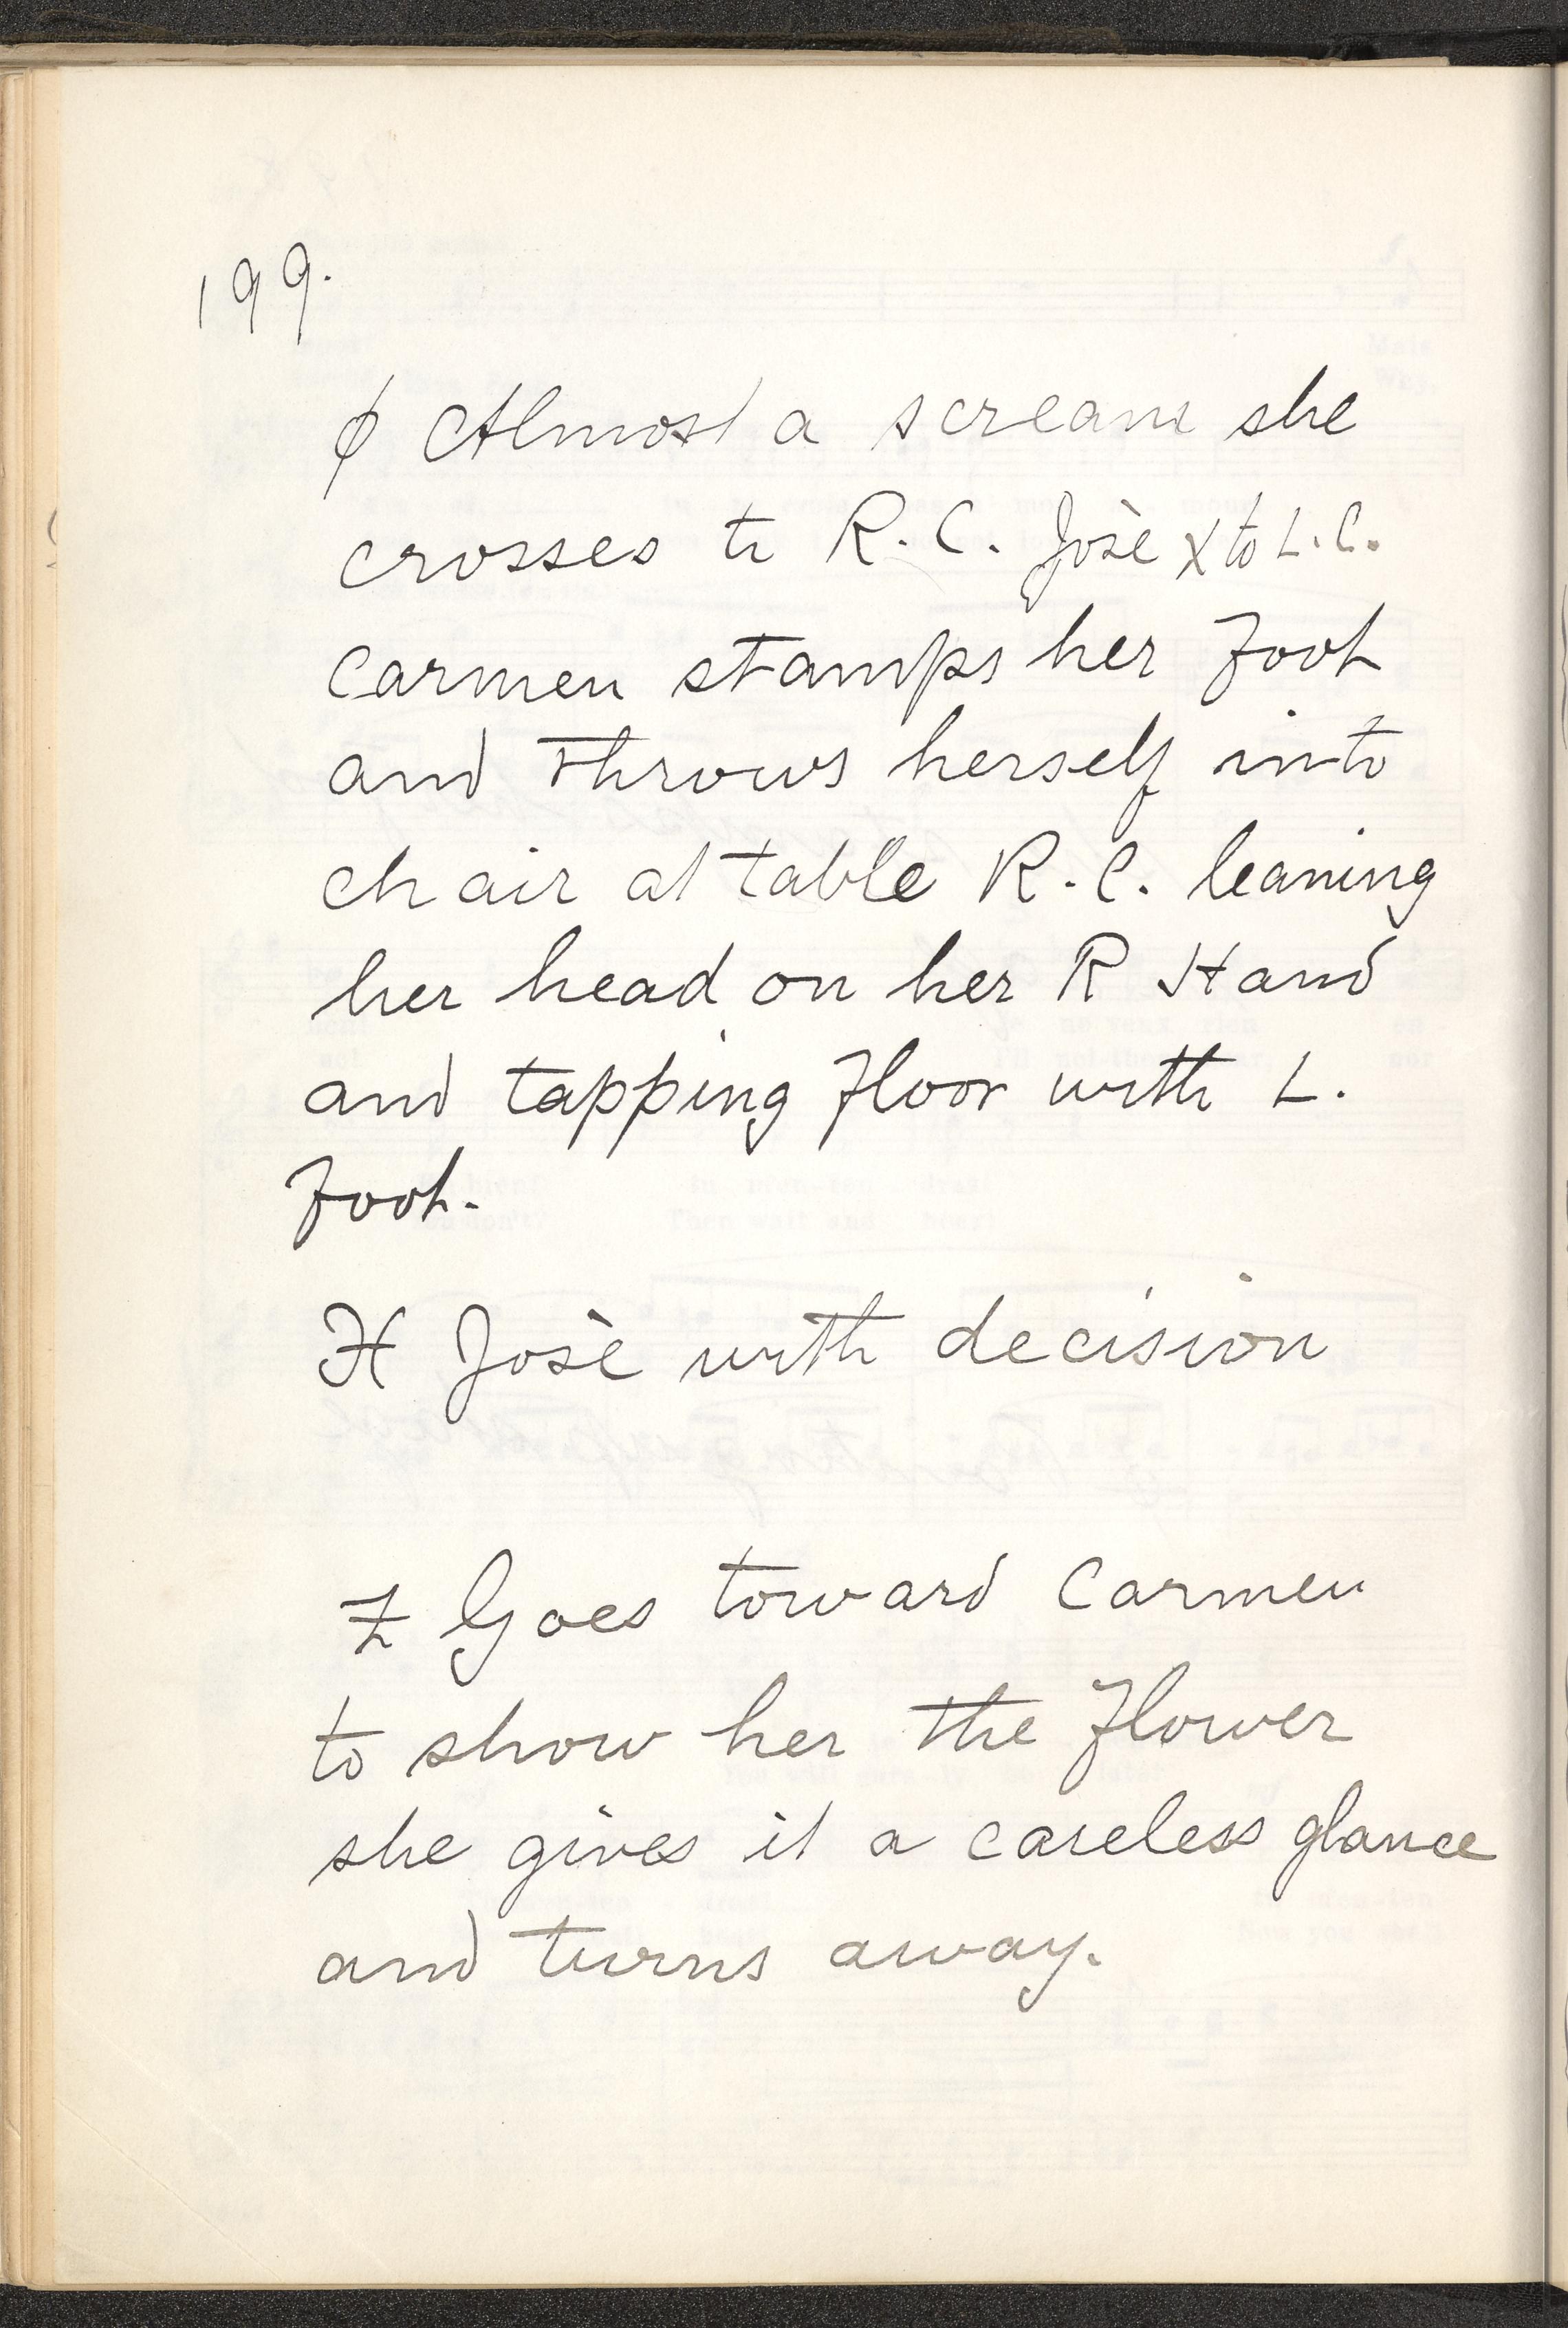 199.
φ Almost a scream she
crosses to R.C. Josè X to L.C.
Carmen stamps her Foot
and throws herself into
chair at table R.C. leaning
her head on her R Hand
and tapping Floor with L.
Foot.
H Josè with decision
Z Goes toward Carmen
to show her the Flower
she gives it a careless glance
and turns away.